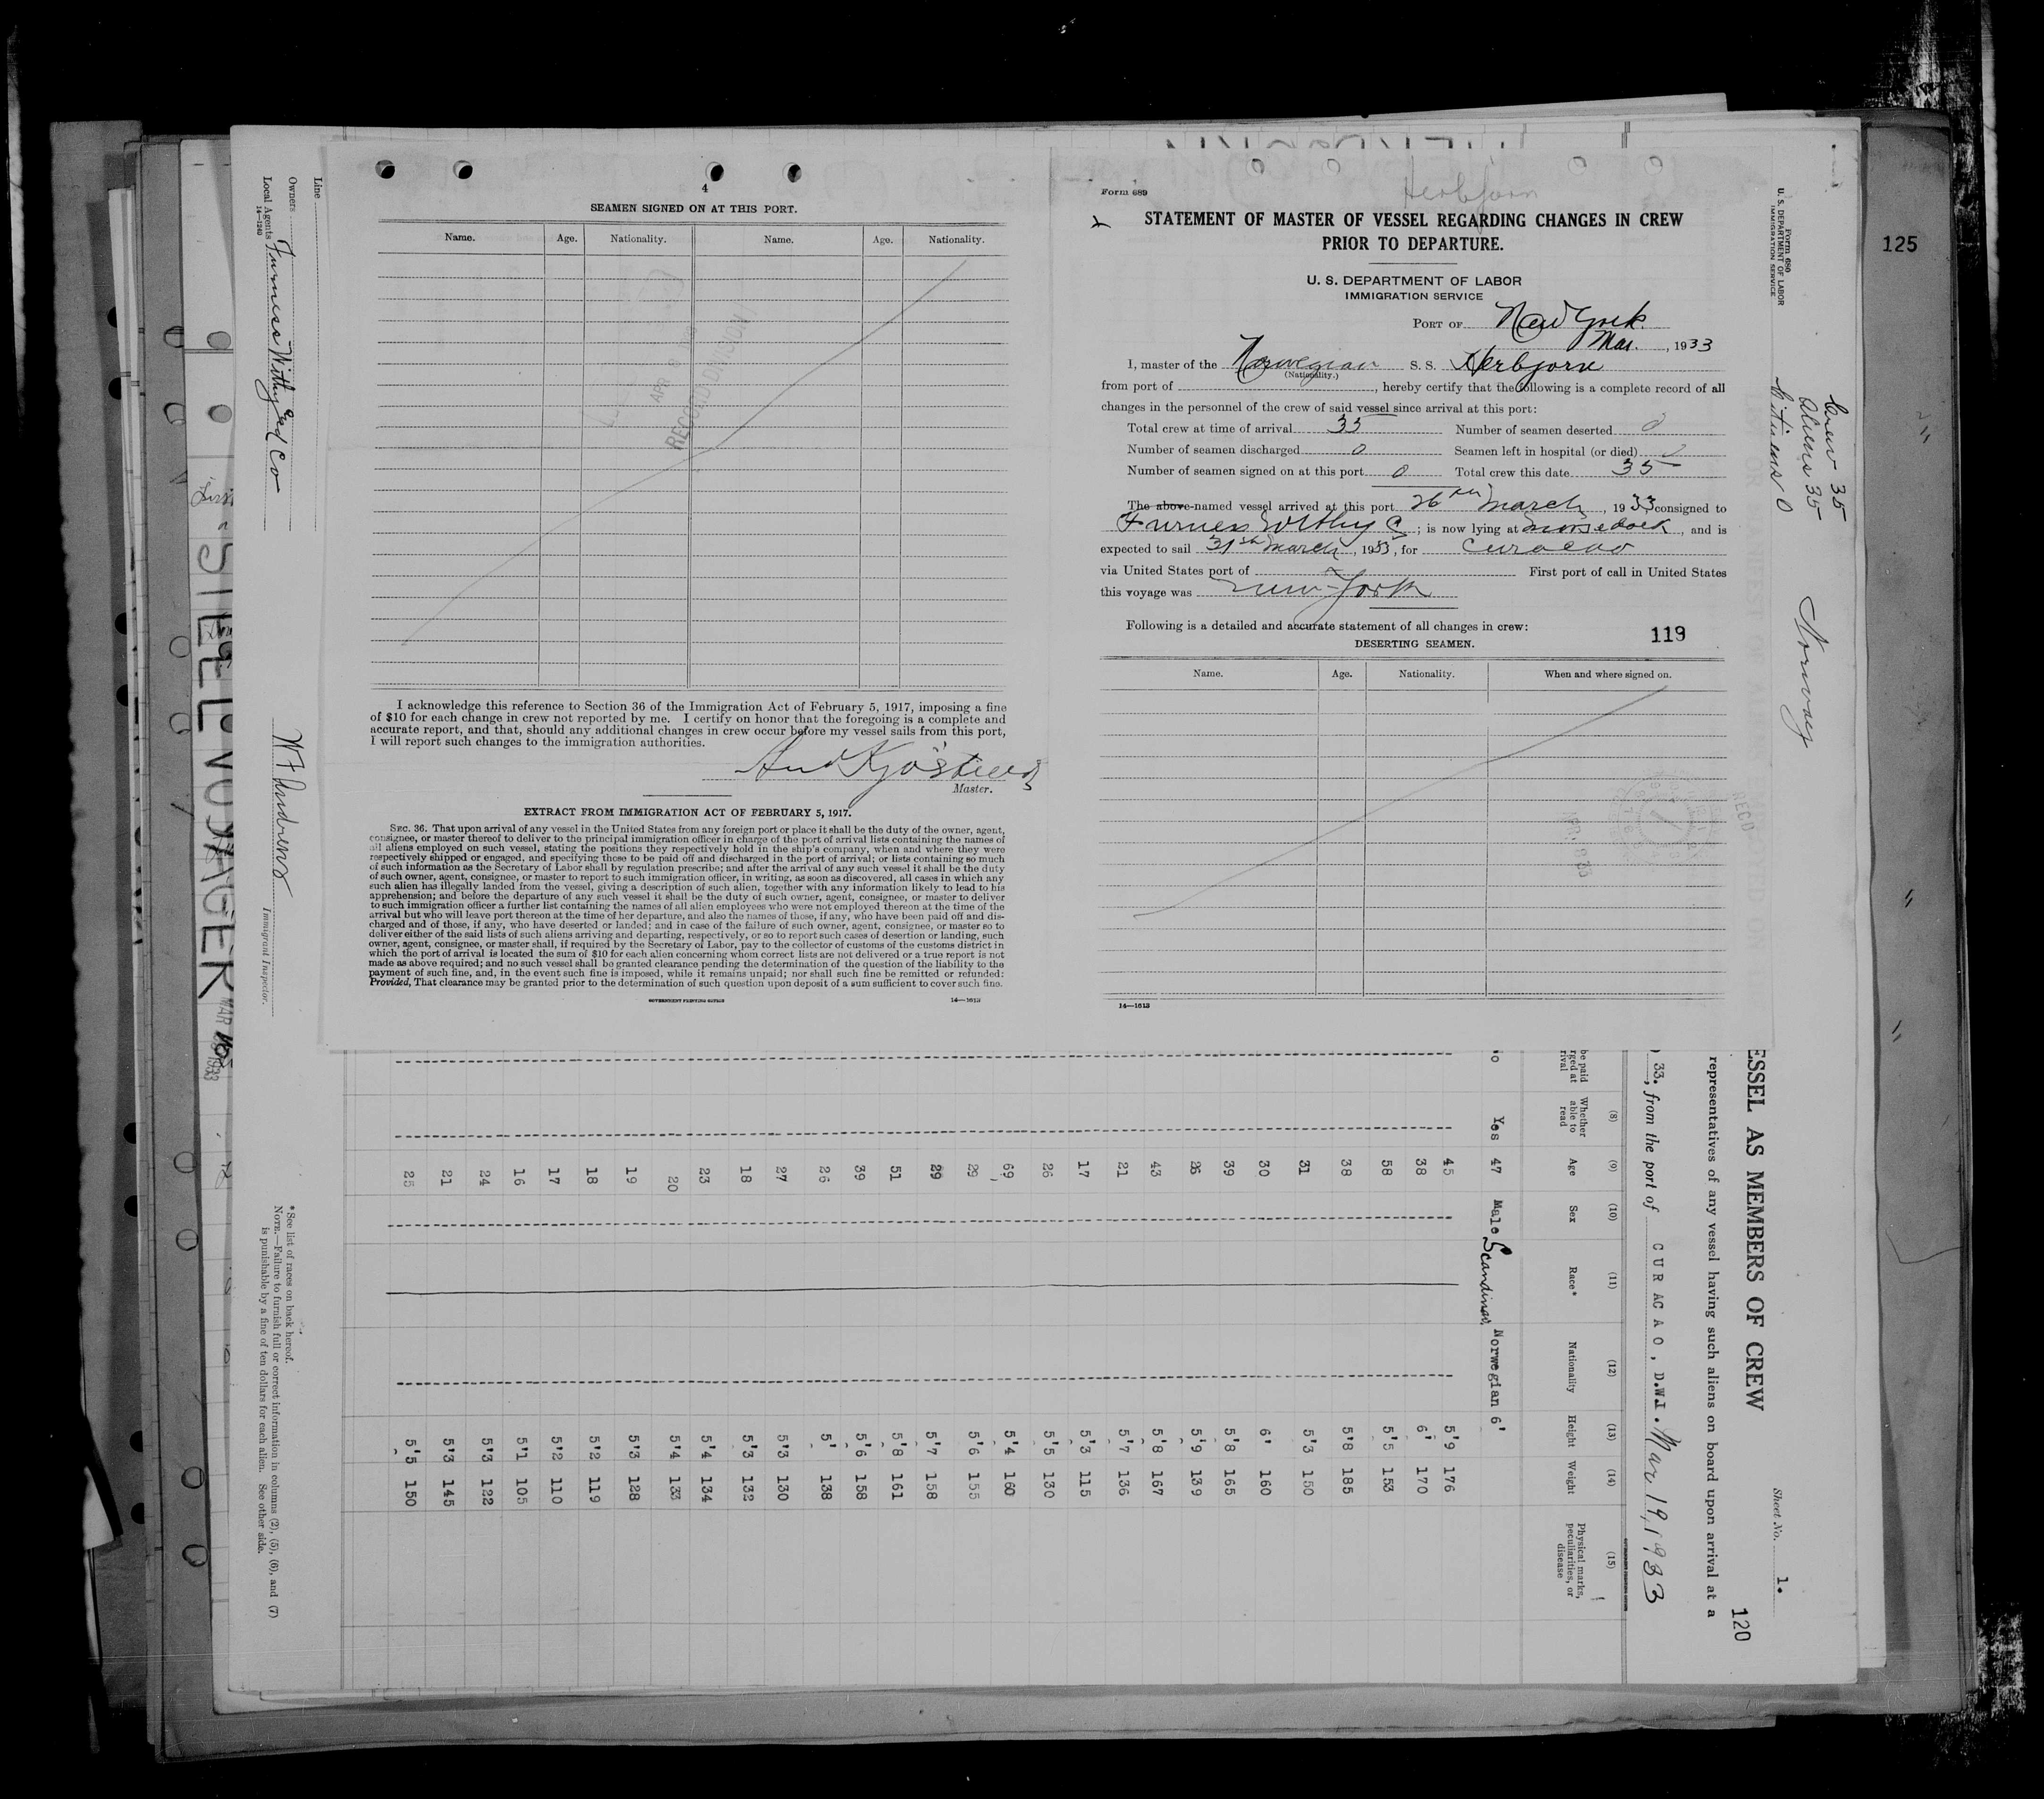 4
SEAMEN SIGNED ON AT THIS PORT.
Name. Age. Nationality. Name. Age. Nationality.
APR
RECORD DIVISION
I acknowledge this reference to Section 36 of the Immigration Act of February 5, 1917, imposing a fine
of $10 for each change in crew not reported by me. I certify on honor that the foregoing is a complete and
accurate report, and that, should any additional changes in crew occur before my vessel sails from this port,
I will report such changes to the immigration authorities.
Master.
EXTRACT FROM IMMIGRATION ACT OF FEBRUARY 5, 1917.
SEC. 36. That upon arrival of any vessel in the United States from any foreign port or place it shall be the duty of the owner, agent,
consignee, or master thereof to deliver to the principal immigration officer in charge of the port of arrival lists containing the names of
all aliens employed on such vessel, stating the positions they respectively hold in the ship's company, when and where they were
respectively shipped or engaged, and specifying those to be paid off and discharged in the port of arrival; or lists containing so much
of such information as the Secretary of Labor shall by regulation prescribe; and after the arrival of any such vessel it shall be the duty
of such owner, agent, consignee, or master to report to such immigration officer, in writing, as soon as discovered, all cases in which any
such alien has illegally landed from the vessel, giving a description of such alien, together with any information likely to lead to his
apprehension; and before the departure of any such vessel it shall be the duty of such owner, agent, consignee, or master to deliver
to such immigration officer a further list containing the names of all alien employees who were not employed thereon at the time of the
arrival but who will leave port thereon at the time of her departure, and also the names of those, if any, who have been paid off and dis-
charged and of those, if any, who have deserted or landed; and in case of the failure of such owner, agent, consignee, or master so to
deliver either of the said lists of such aliens arriving and departing, respectively, or so to report such cases of desertion or landing, such
owner, agent, consignee, or master shall, if required by the Secretary of Labor, pay to the collector of customs of the customs district in
which the port of arrival is located the sum of $10 for each alien concerning whom correct lists are not delivered or a true report is not
made as above required; and no such vessel shall be granted clearance pending the determination of the question of the liability to the
payment of such fine, and, in the event such fine is imposed, while it remains unpaid; nor shall such fine be remitted or refunded:
Provided, That clearance may be granted prior to the determination of such question upon deposit of a sum sufficient to cover such fine.
GOVERNMENT PRINTING OFFICE 14—1613
Herbjorn
Form 689
STATEMENT OF MASTER OF VESSEL REGARDING CHANGES IN CREW
PRIOR TO DEPARTURE.
U. S. DEPARTMENT OF LABOR
IMMIGRATION SERVICE
PORT OF New York.
Mar. , 1933
I, master of the Norwegian S. S. Herbjorn
(Nationality.)
from port of , hereby certify that the following is a complete record of all
changes in the personnel of the crew of said vessel since arrival at this port:
Total crew at time of arrival 35 Number of seamen deserted 0
Number of seamen discharged 0 Seamen left in hospital (or died)
Number of seamen signed on at this port 0 Total crew this date 35
The above-named vessel arrived at this port 26th March , 1933 consigned to
Furness Withy Co ; is now lying at morse dock , and is
expected to sail 31st March , 1933, for Curacao
via United States port of First port of call in United States
this voyage was New York
Following is a detailed and accurate statement of all changes in crew:
119
DESERTING SEAMEN.
Name. Age. Nationality. When and where signed on.
14—1613
125
Form 680
U. S. DEPARTMENT OF LABOR
IMMIGRATION SERVICE
Crew 35
Aliens 35
Citizens 0
Norway
Sheet No. 1.
120
ESSEL AS MEMBERS OF CREW
representatives of any vessel having such aliens on board upon arrival at a
33., from the port of CURACAO, D.W.I. Mar 19, 1933
be paid
rged at
rival
(8) Whether able to read
(9) Age
(10) Sex
(11) Race*
(12) Nationality
(13) Height
(14) Weight
(15) Physical marks, peculiarities, or disease
Yes 47 Male Scandinav. Norwegian 6'
45 5'9 176
38 6' 170
58 5'5 153
38 5'8 185
31 5'3 150
30 6' 160
39 5'8 165
26 5'9 139
43 5'8 167
21 5'7 136
17 5'3 115
26 5'5 130
69 5'4 160
29 5'6 155
29 5'7 158
51 5'8 161
39 5'6 158
26 5' 138
27 5'3 130
18 5'3 132
23 5'4 134
20 5'4 133
19 5'3 128
18 5'2 119
17 5'2 110
16 5'1 105
24 5'3 122
21 5'3 145
25 5'5 150
Line
Owners
Local Agents Furness Withy and Co
14—1240
W F Andrews
Immigrant Inspector.
*See list of races on back hereof.
NOTE.—Failure to furnish full or correct information in columns (2), (5), (6), and (7)
is punishable by a fine of ten dollars for each alien. See other side.
STEEL VOYAGER